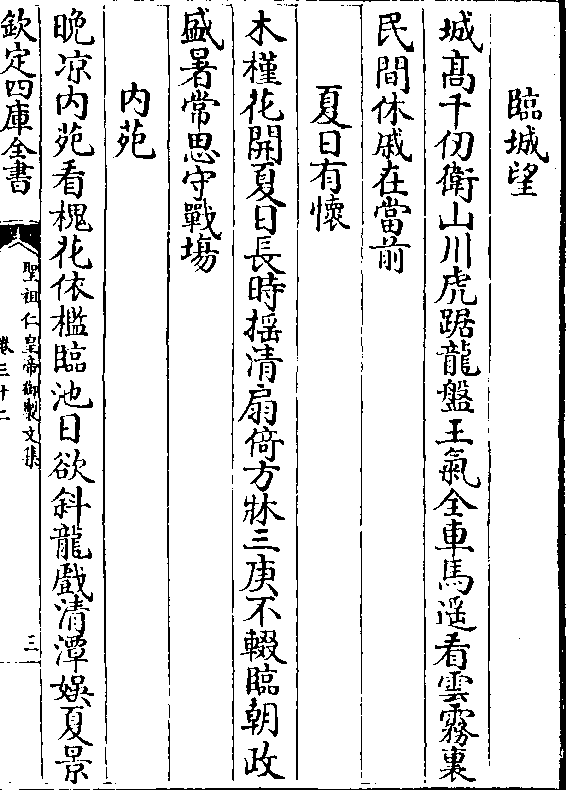 臨城望
城髙千仞衛山川虎踞龍盤王氣全車馬遥看雲霧裏
民間休戚在當前
夏日有懷
木槿花開夏日長時揺清扇倚方牀三庚不輟臨朝政
盛暑常思守戰塲
内苑
晚凉内苑看槐花依檻臨池日欲斜龍戲清潭娱夏景
欽定四庫全書
聖祖仁皇帝御製文集
卷三十二
三